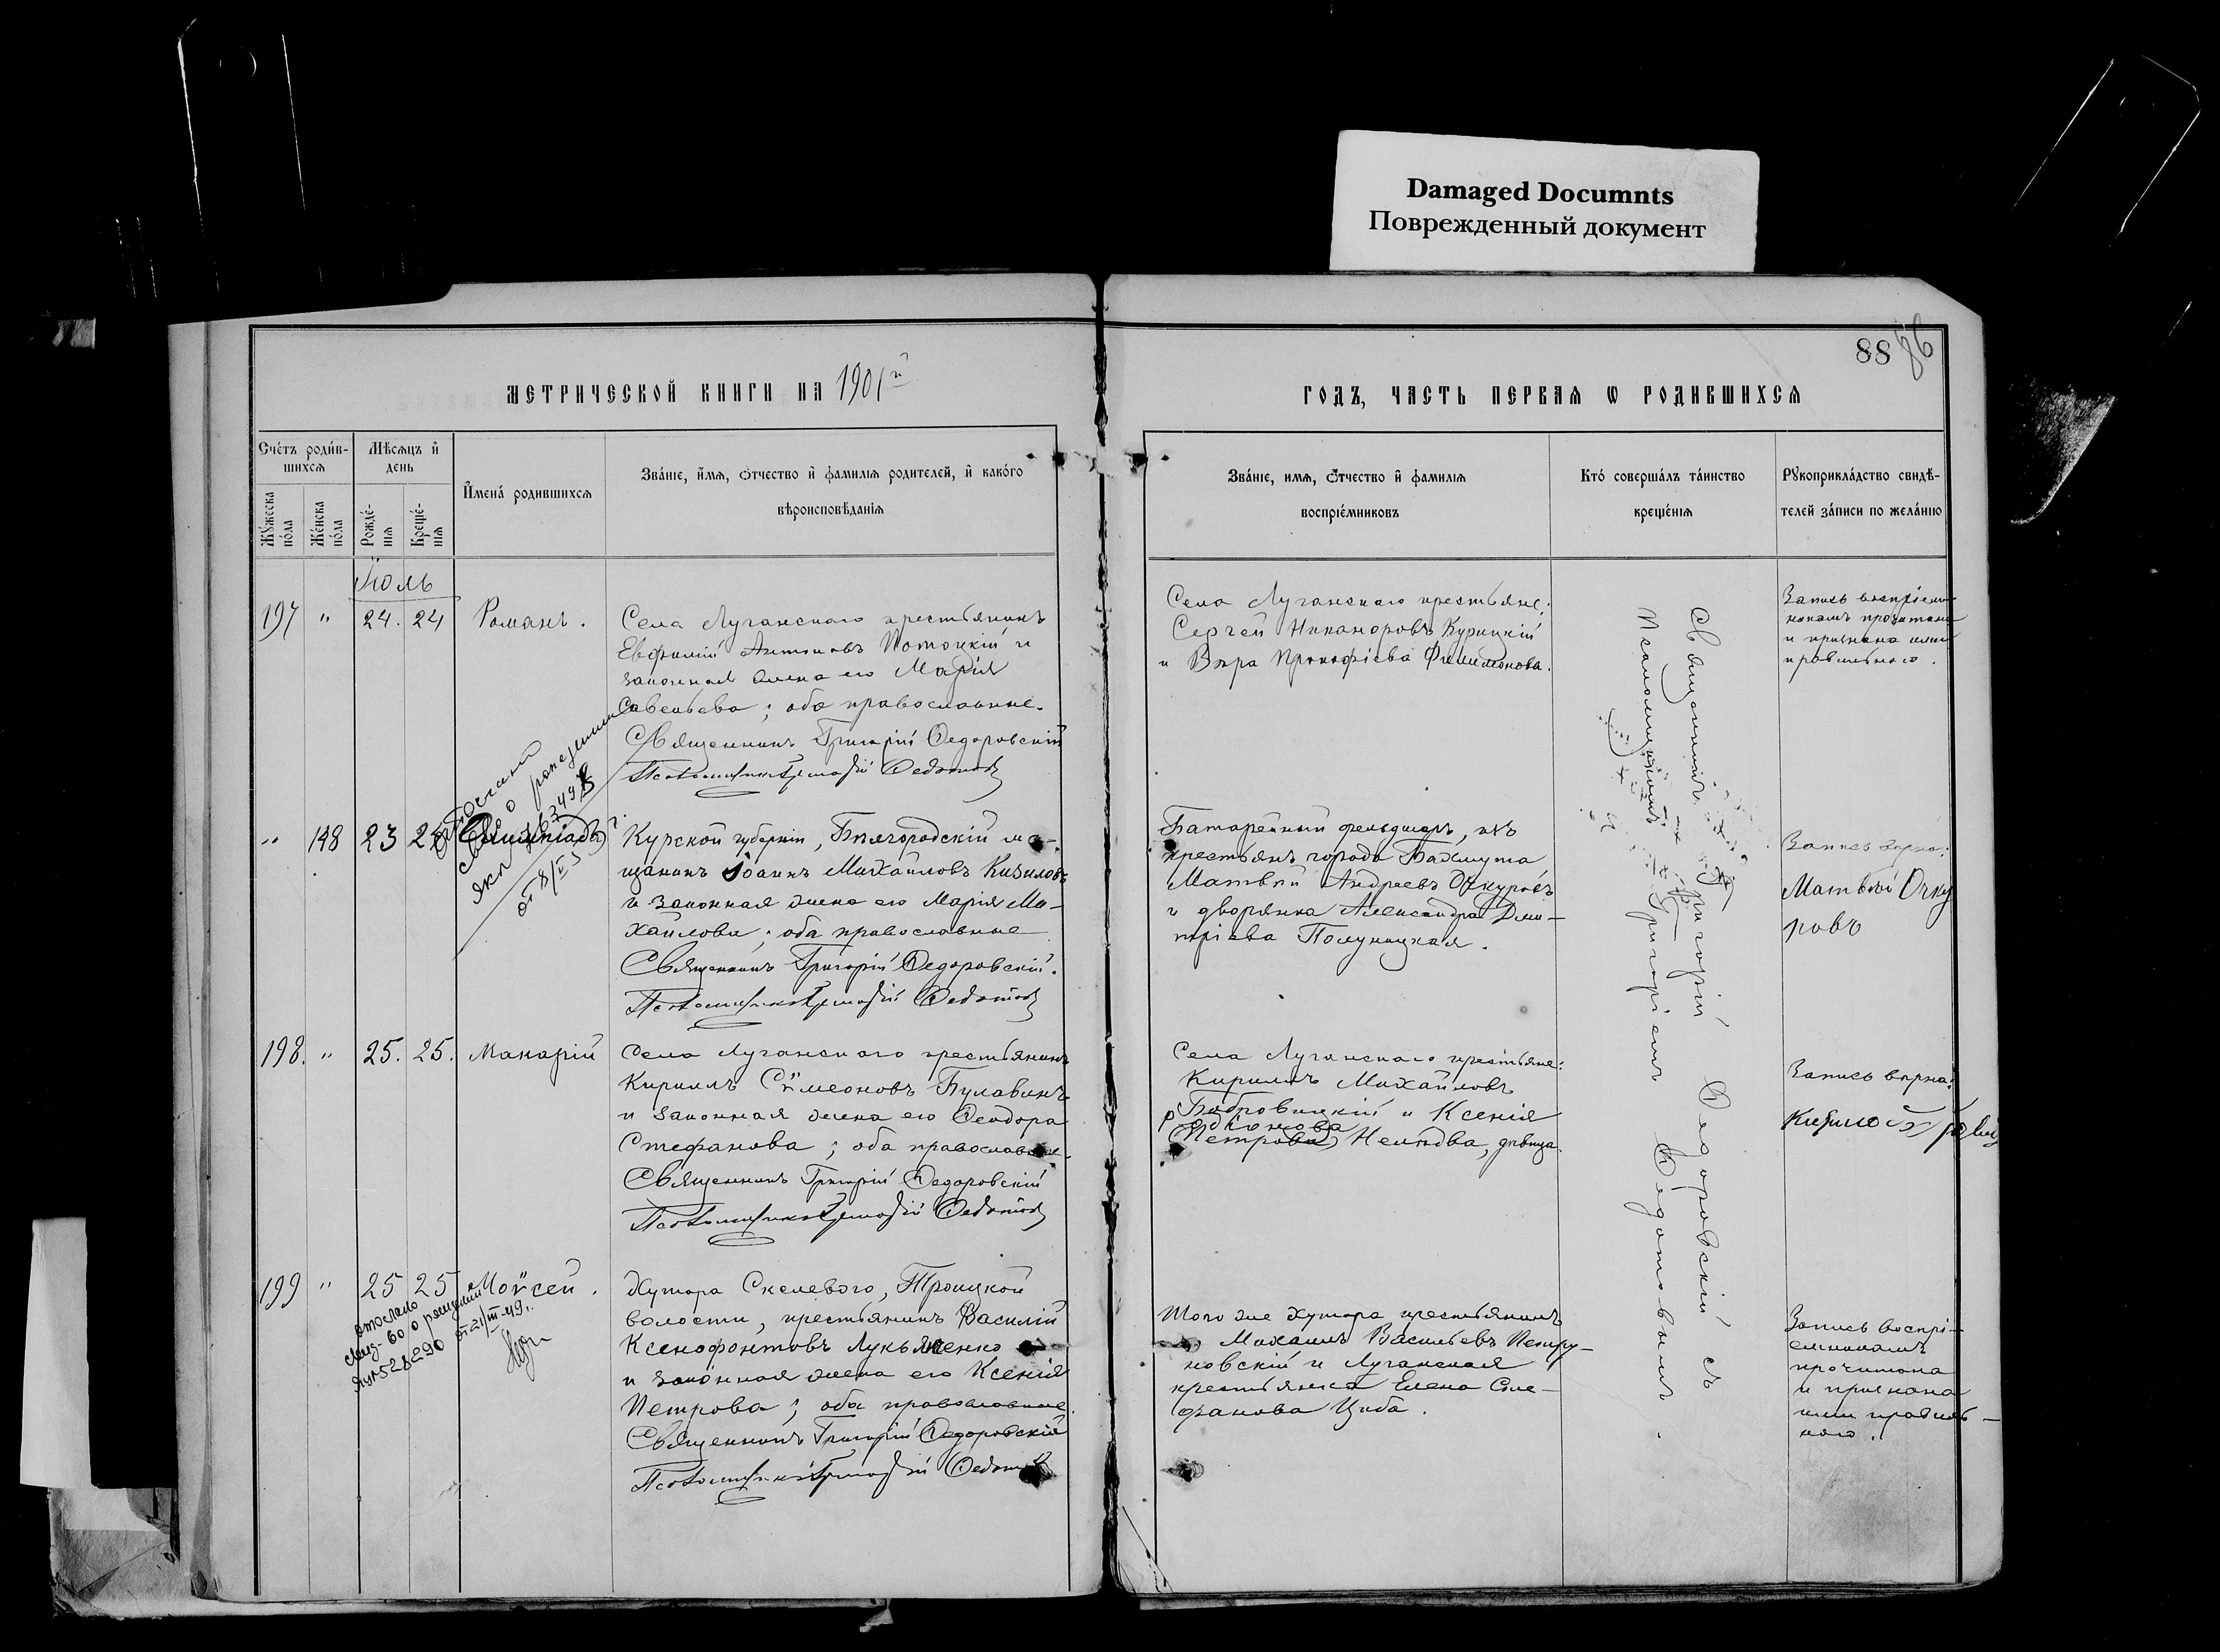 Damaged Documnts
Поврежденный документ
88 86
МЕТРИЧЕСКОЙ КНИГИ НА 1901й
ГОДЪ, ЧАСТЬ ПЕРВАЯ Ѡ РОДИВШИХСЯ
Счётъ родив-
шихся
Мѣсяцъ и
день
Мужеска
пола
Женска
пола
Рожде-
нія
Креще-
нія
Имена родившихся
Званіе, имя, отчество и фамилія родителей, и какого
вѣроисповѣданія
Званіе, имя, отчество и фамилія
воспріемниковъ
Кто совершалъ таинство
крещенія
Рукоприкладство свидѣ-
телей записи по желанію
Іюль
197 " 24. 24 Романъ.
Села Луганскаго крестьянинъ
Евфимій Антоновъ Потоцкій и
законная жена его Марія
Савельева; оба православные.
Священникъ Григорій Ѳедоровскій
Псаломщикъ Григорій Ѳедотовъ
Села Луганскаго крестьяне:
Сергей Никаноровъ Курицкій
и Вѣра Прокофіева Филимонова.
Запись воспріем-
никамъ прочитана
и признана ими
правильною.
" 148 23 24 Олимпіада
Курской губерніи, Бѣлгородскій мѣ-
щанинъ Іоаннъ Михайловъ Кизиловъ
и законная жена его Марія Ми-
хайлова; оба православные
Священникъ Григорій Ѳедоровскій.
Псаломщикъ Григорій Ѳедотовъ
Батарейный фельдшеръ, изъ
крестьянъ города Бахмута
Матвѣй Андреевъ Очкуровъ
и дворянка Александра Дми-
тріева Полуницкая.
Запись вѣрна:
Матвѣй Очку
ровъ
198. " 25. 25. Макарій
Села Луганскаго крестьянинъ
Кириллъ Симеоновъ Булавинъ
и законная жена его Ѳеодора
Стефанова; оба православные.
Священникъ Григорій Ѳедоровскій
Псаломщикъ Григорій Ѳедотовъ
Села Луганскаго крестьяне:
Кириллъ Михайловъ
Бобровицкій и Ксенія
Родіонова
Петрова Неліова, дѣвица.
Запись вѣрна:
199 " 25 25 Моѵсей.
отослано
свид-во о рождении
от 21/III-49г.
Хутора Скелеваго, Троицкой
волости, крестьянинъ Василій
Ксенофонтовъ Лукьяненко
и законная жена его Ксенія
Петрова; оба православные.
Священникъ Григорій Ѳедоровскій
Псаломщикъ Григорій Ѳедотовъ
Того же хутора крестьянинъ
Михаилъ Васильевъ Петру-
новскій и Луганская
крестьянка Елена Сте-
фанова Циба.
Запись воспрі-
емникамъ
прочитана
и признана
ими правиль-
ною.
Священникъ Григорій Ѳедоровскій съ
Псаломщикомъ Григоріемъ Ѳедотовымъ.